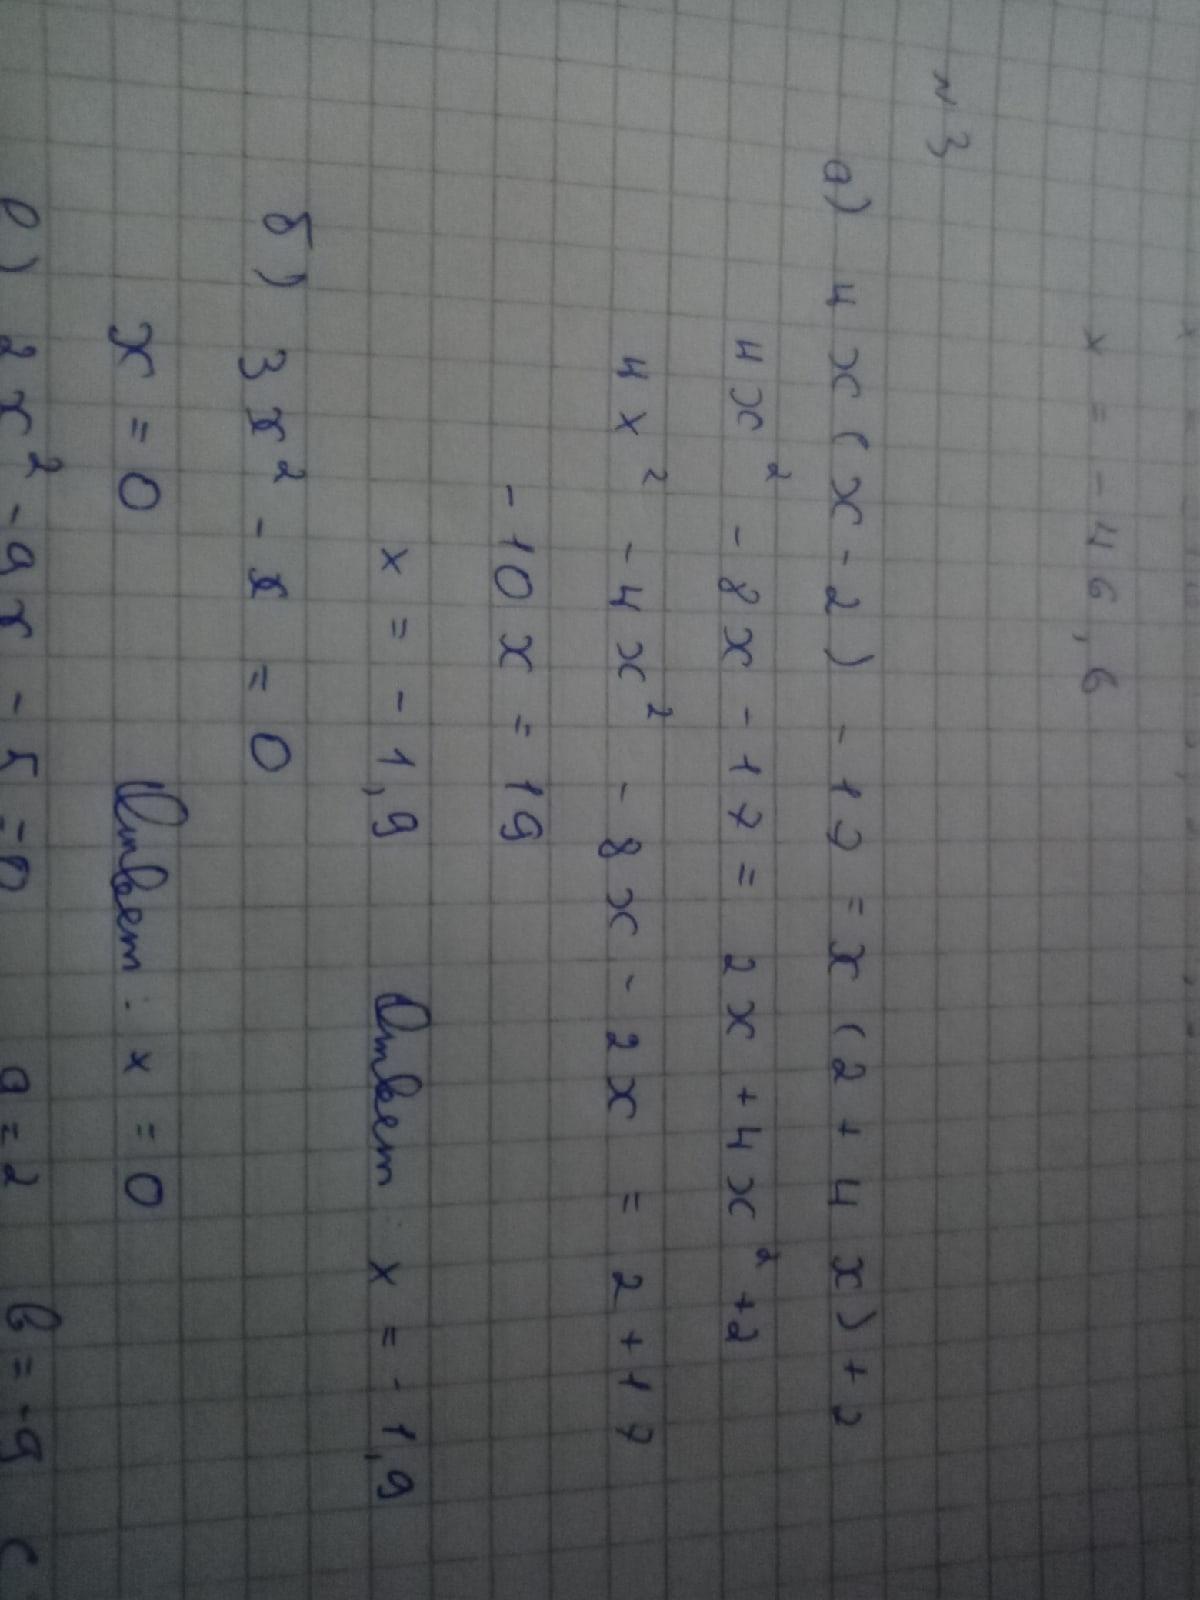 x = -46,6
№3
а) 4x(x-2) - 17 = x(2+4x)+2
4x² - 8x - 17 = 2x + 4x² + 2
4x² - 4x² - 8x - 2x = 2+17
-10x = 19
x = -1,9 Ответ: x = -1,9
б) 3x² - x = 0
x = 0 Ответ: x = 0
в) 2x² - 9x - 5 = 0 a = 2 b = -9 c